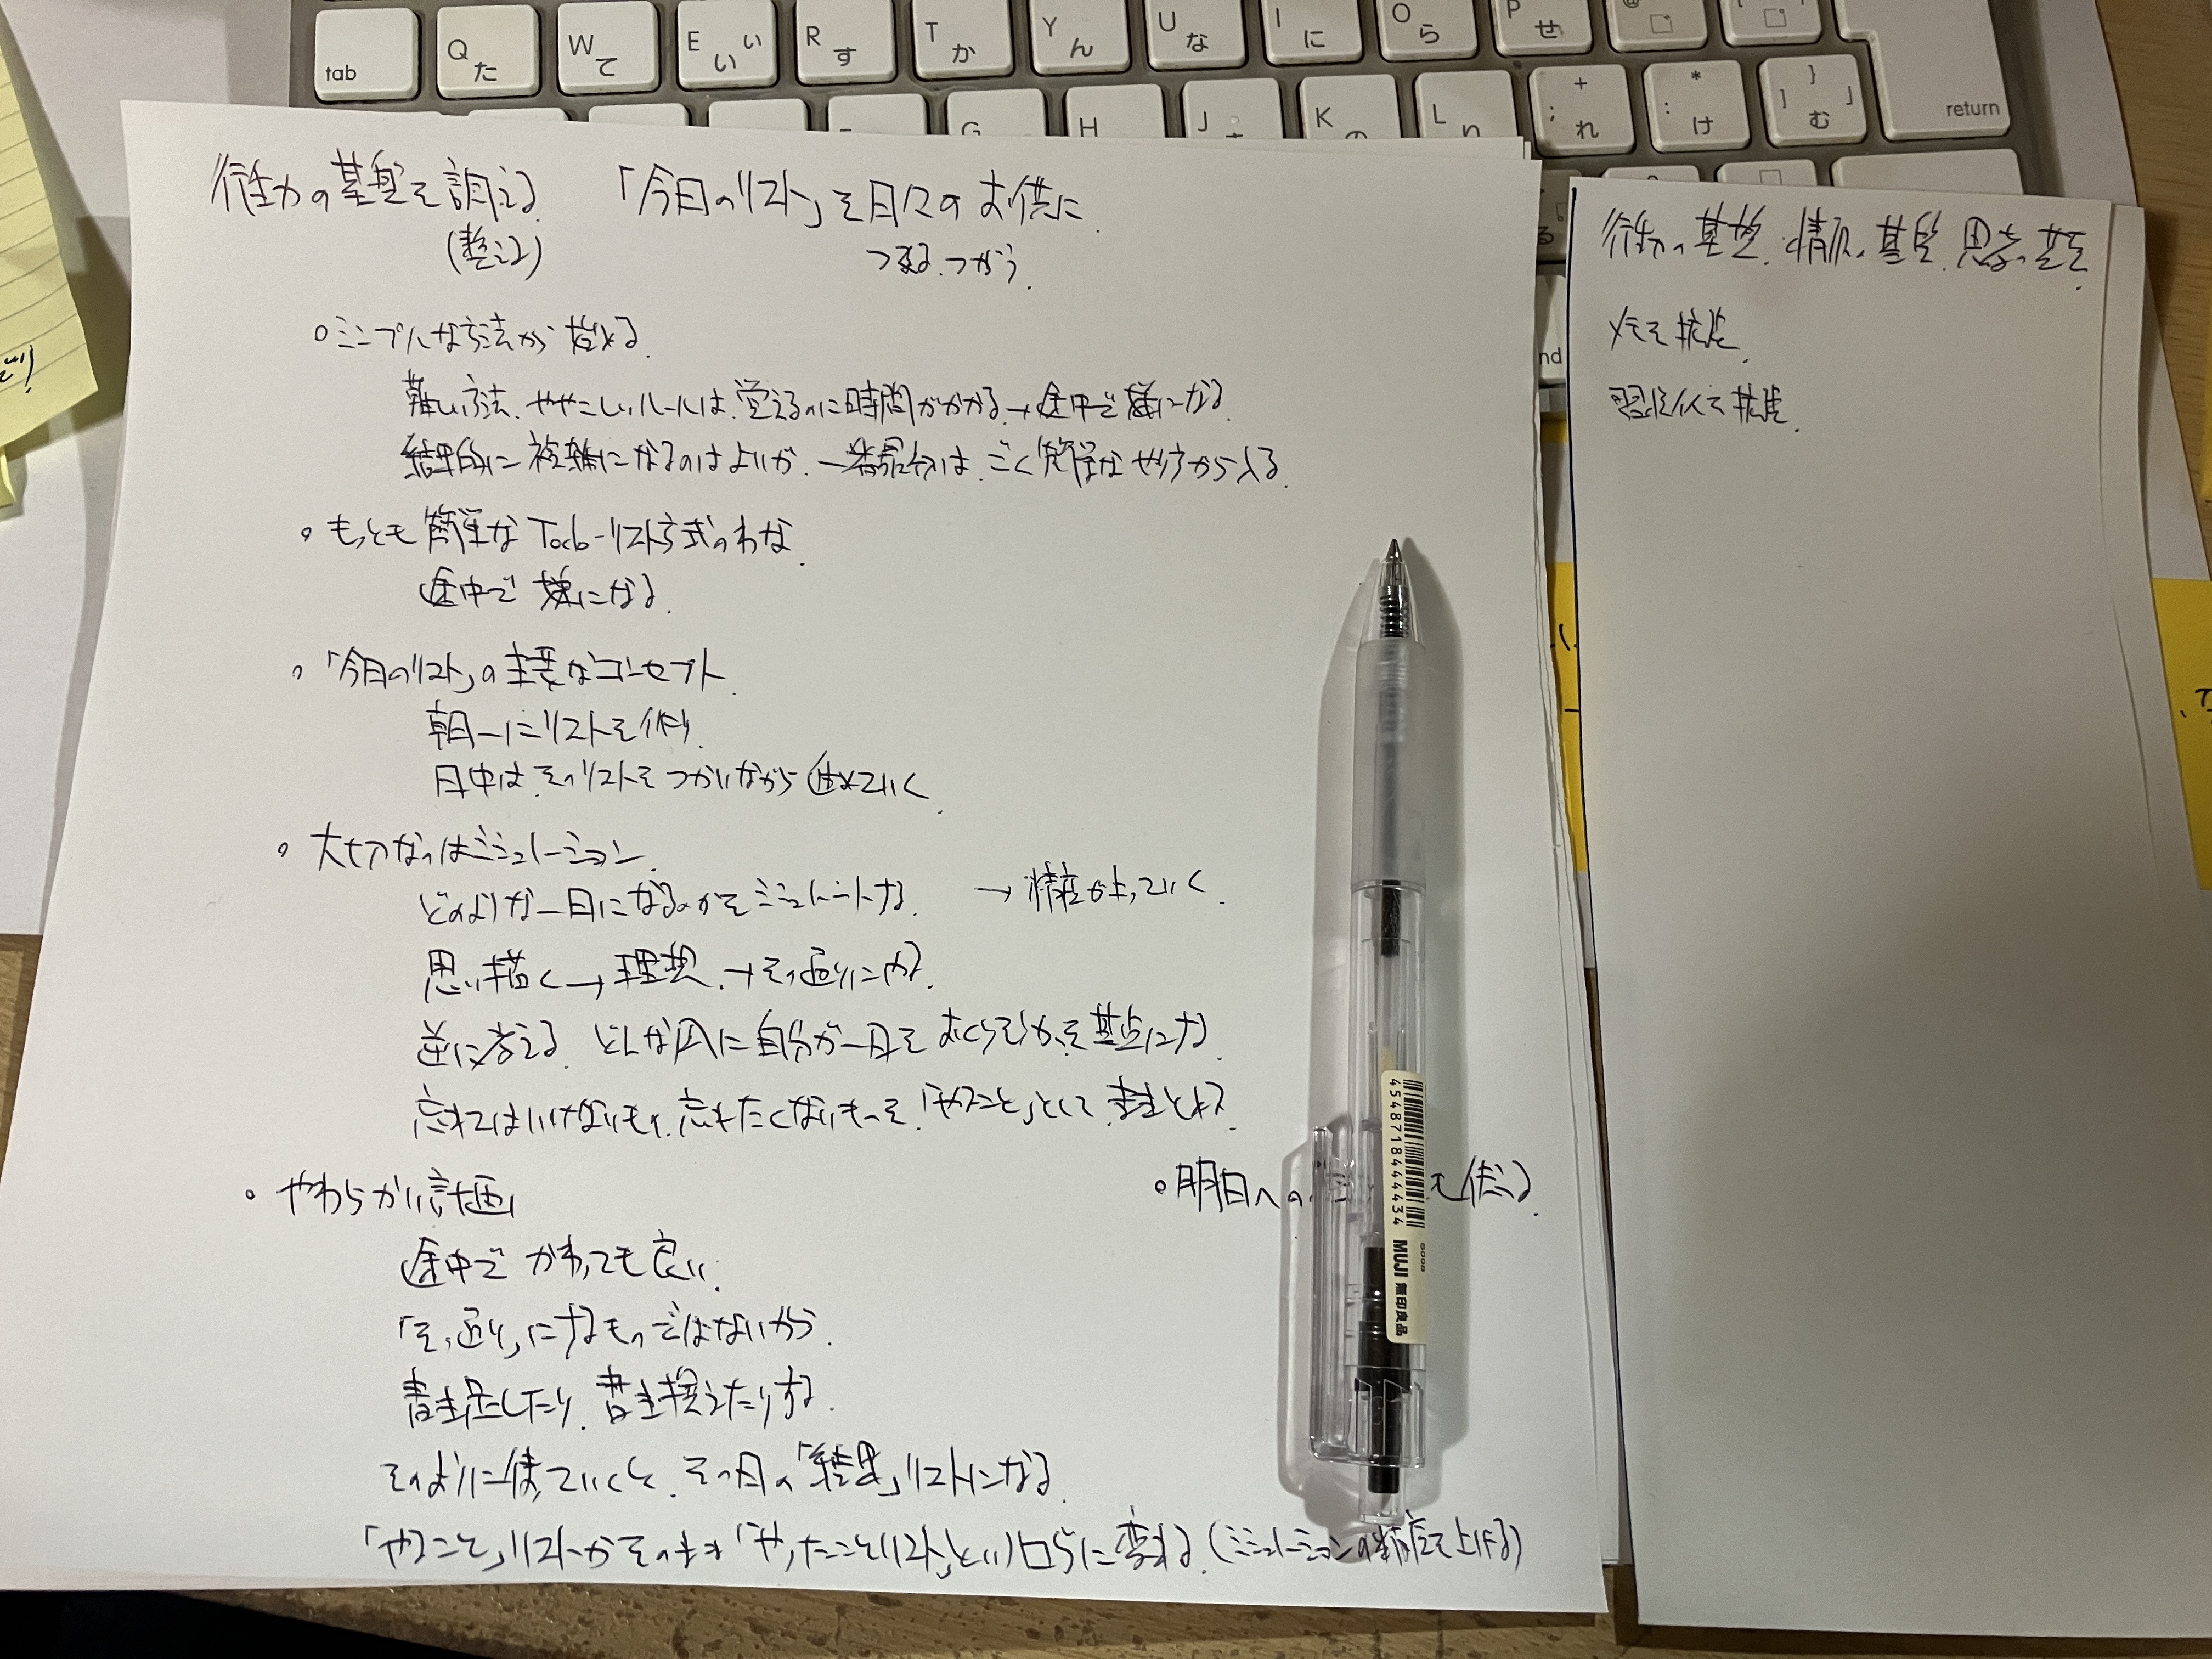 行動の基盤を調える 「今日のリスト」を日々のお供に
(整える) つくる、つかう
シンプルな方法から始める
難しい方法、ややこしいルールは、覚えるのに時間がかかる→途中で嫌になる
結果的に複雑になるのはよいが、一番最初は、ごく簡単なやり方から入る
もっとも簡単なTodo-リスト方式のわな
途中で嫌になる
「今日のリスト」の主要なコンセプト
朝一にリストを作り
日中はそのリストをつかいながら進めていく
大切なのはシミュレーション
どのような一日になるのかをシミュレートする → 精度が上っていく
思い描く→理想→その通りにやる
逆に考える どんな風に自分が一日をおくりそうかを基点にする
忘れてはいけないもの、忘れたくないものを「やること」として書きとめる
やわらかい計画
明日への を伝える
途中でかわっても良い
「その通り」にするものではないから
書き足したり、書き換えたりする
そのように使っていくと、その日の「結果」リストになる
「やること」リストがそのまま「やったことリスト」というログに変わる(シミュレーションの精度を上げる)
行動の基盤、情報の基盤、思考の基盤
メモを推進
習慣化を推進
tab
Q た
W て
E い ぃ
R す
T か
Y ん
U な
I に
O ら
P せ
G
H
J
K の
L り
+ ; れ
* : け
} ] 」 む
return
4548718444434
MUJI 無印良品